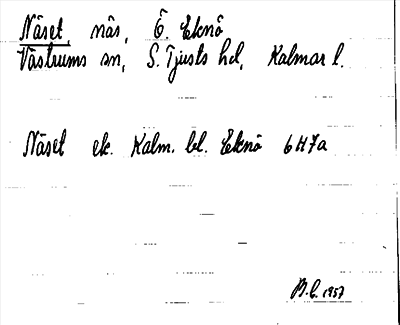 Näset, näs, Ö. Eknö
Västrums sn, S. Tjusts hd, Kalmar l.
Näset ek. Kalm. bl. Eknö 6H7a
B.E. 1957